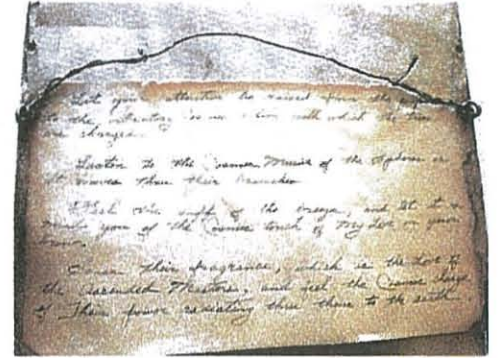 Let your attention be raised from the
to the vibratory action with which the trees
are charged.
Listen to the Cosmic Music of the Spheres as
it moves thru their branches
the of the breeze, and let it
you of the Cosmic touch of my love on your
their fragrance, which is the love of
the Ascended Masters, and feel the Cosmic
of Their power radiating thru them to the earth.